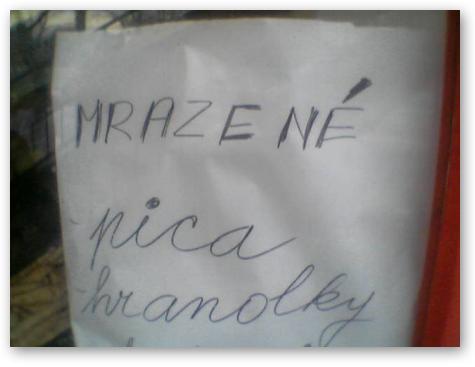 MRAZENÉ
- pica
- hranolky